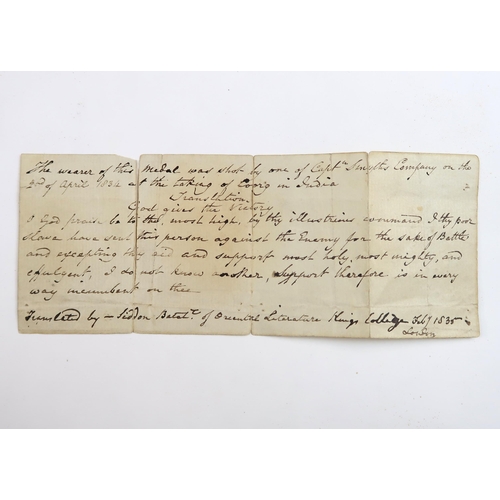 The wearer of this Medal was shot by one of Captn Smyth's Company on the
3rd of April 1834 at the taking of Coorg in India
Translation
God gives the Victory
O God praise be to thee, most high, by thy illustrious command I thy poor
slave have sent this person against the Enemy for the sake of Battle
and excepting thy aid and support most holy, most mighty, and
efulgent, I do not know another, support therefore is in every
way incumbent on thee
Translated by Siddon of Oriental Literature Kings College Feby 1835
London